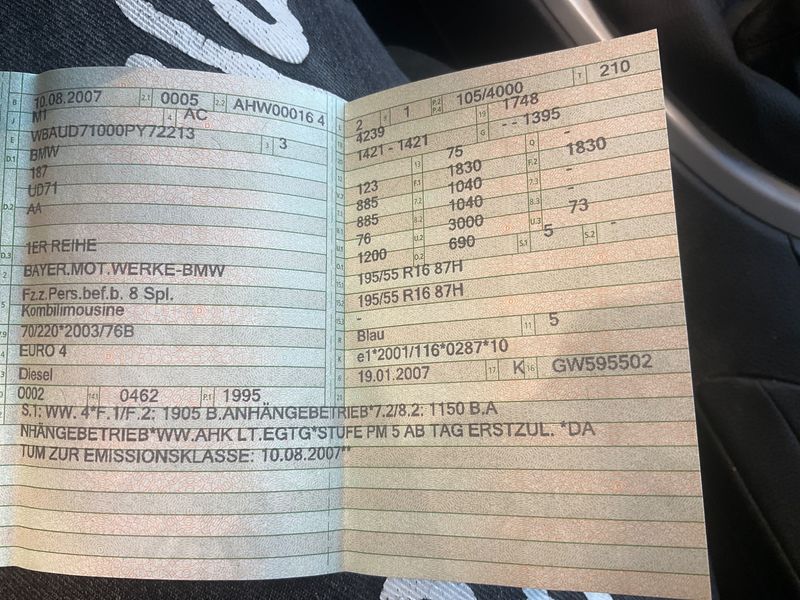 B 10.08.2007 2.1 0005 2.2 AHW00016 4
J M1 4 AC
E WBAUD71000PY72213 3 3
D.1 BMW
187
D.2 UD71
AA
D.3 1ER REIHE
2 BAYER.MOT.WERKE-BMW
5 Fz.z.Pers.bef.b. 8 Spl.
Kombilimousine
V.9 70/220*2003/76B
EURO 4
Diesel
0002 14.1 0462 P.1 1995
2 9 1 P.2 P.4 105/4000 T 210
4239 19 1748
1421 - 1421 G - - 1395
13 75 Q -
123 F.1 1830 F.2 1830
885 7.2 1040 7.3 -
885 8.2 1040 8.3 -
76 U.2 3000 U.3 73
1200 O.2 690 S.1 5 S.2 -
195/55 R16 87H
195/55 R16 87H
-
R Blau 11 5
K e1*2001/116*0287*10
6 19.01.2007 17 K 16 GW595502
21
S.1: WW. 4*F.1/F.2: 1905 B.ANHÄNGEBETRIEB*7.2/8.2: 1150 B.A
NHÄNGEBETRIEB*WW.AHK LT.EGTG*STUFE PM 5 AB TAG ERSTZUL. *DA
TUM ZUR EMISSIONSKLASSE: 10.08.2007**